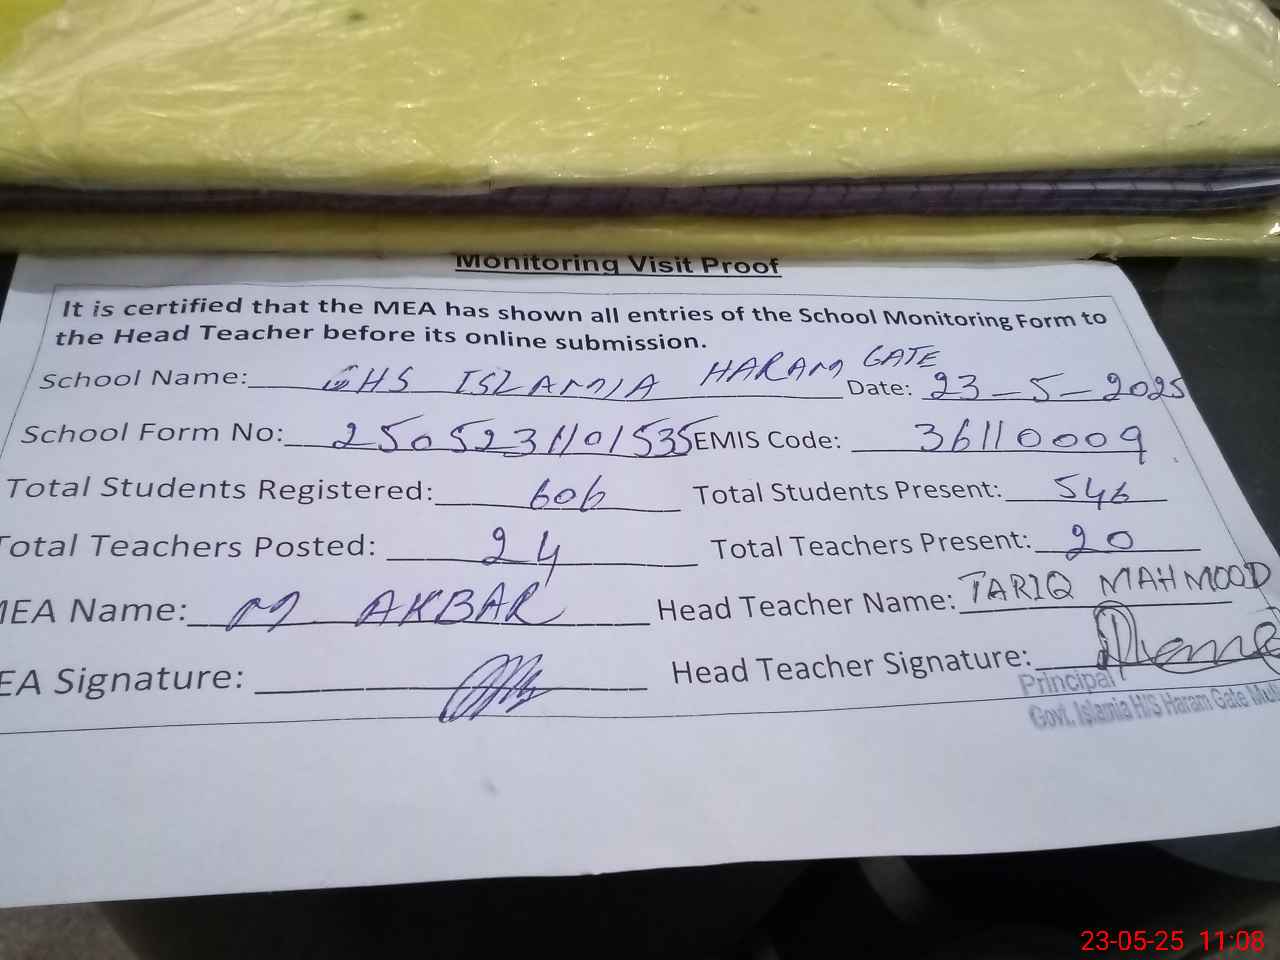 Monitoring Visit Proof
It is certified that the MEA has shown all entries of the School Monitoring Form to
the Head Teacher before its online submission.
School Name: GHS ISLAMIA HARAM GATE Date: 23-5-2025
School Form No: 2505231101535 EMIS Code: 36110009
Total Students Registered: 606 Total Students Present: 546
Total Teachers Posted: 24 Total Teachers Present: 20
MEA Name: M AKBAR Head Teacher Name: TARIQ MAHMOOD
EA Signature: Head Teacher Signature:
Principal
Govt. Islamia H/S Haram Gate Mul
23-05-25 11:08